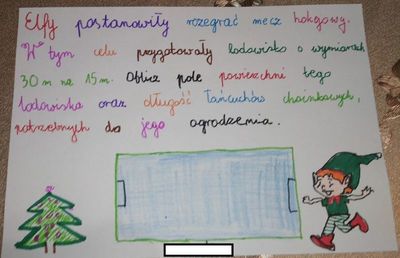 Elfy postanowiły rozegrać mecz hokejowy.
W tym celu przygotowały lodowisko o wymiarach
30 m na 15 m. Oblicz pole powierzchni tego
lodowiska oraz długość łańcuchów choinkowych,
potrzebnych do jego ogrodzenia.